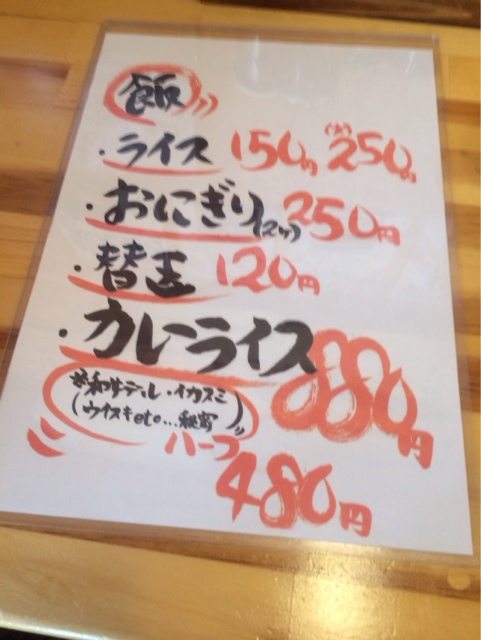 飯
・ライス 150円 (大)250円
・おにぎり(2ケ) 250円
・替玉 120円
・カレーライス 880円
※和牛テール・イカスミ
(ウイスキetc...秘密)
ハーフ
480円